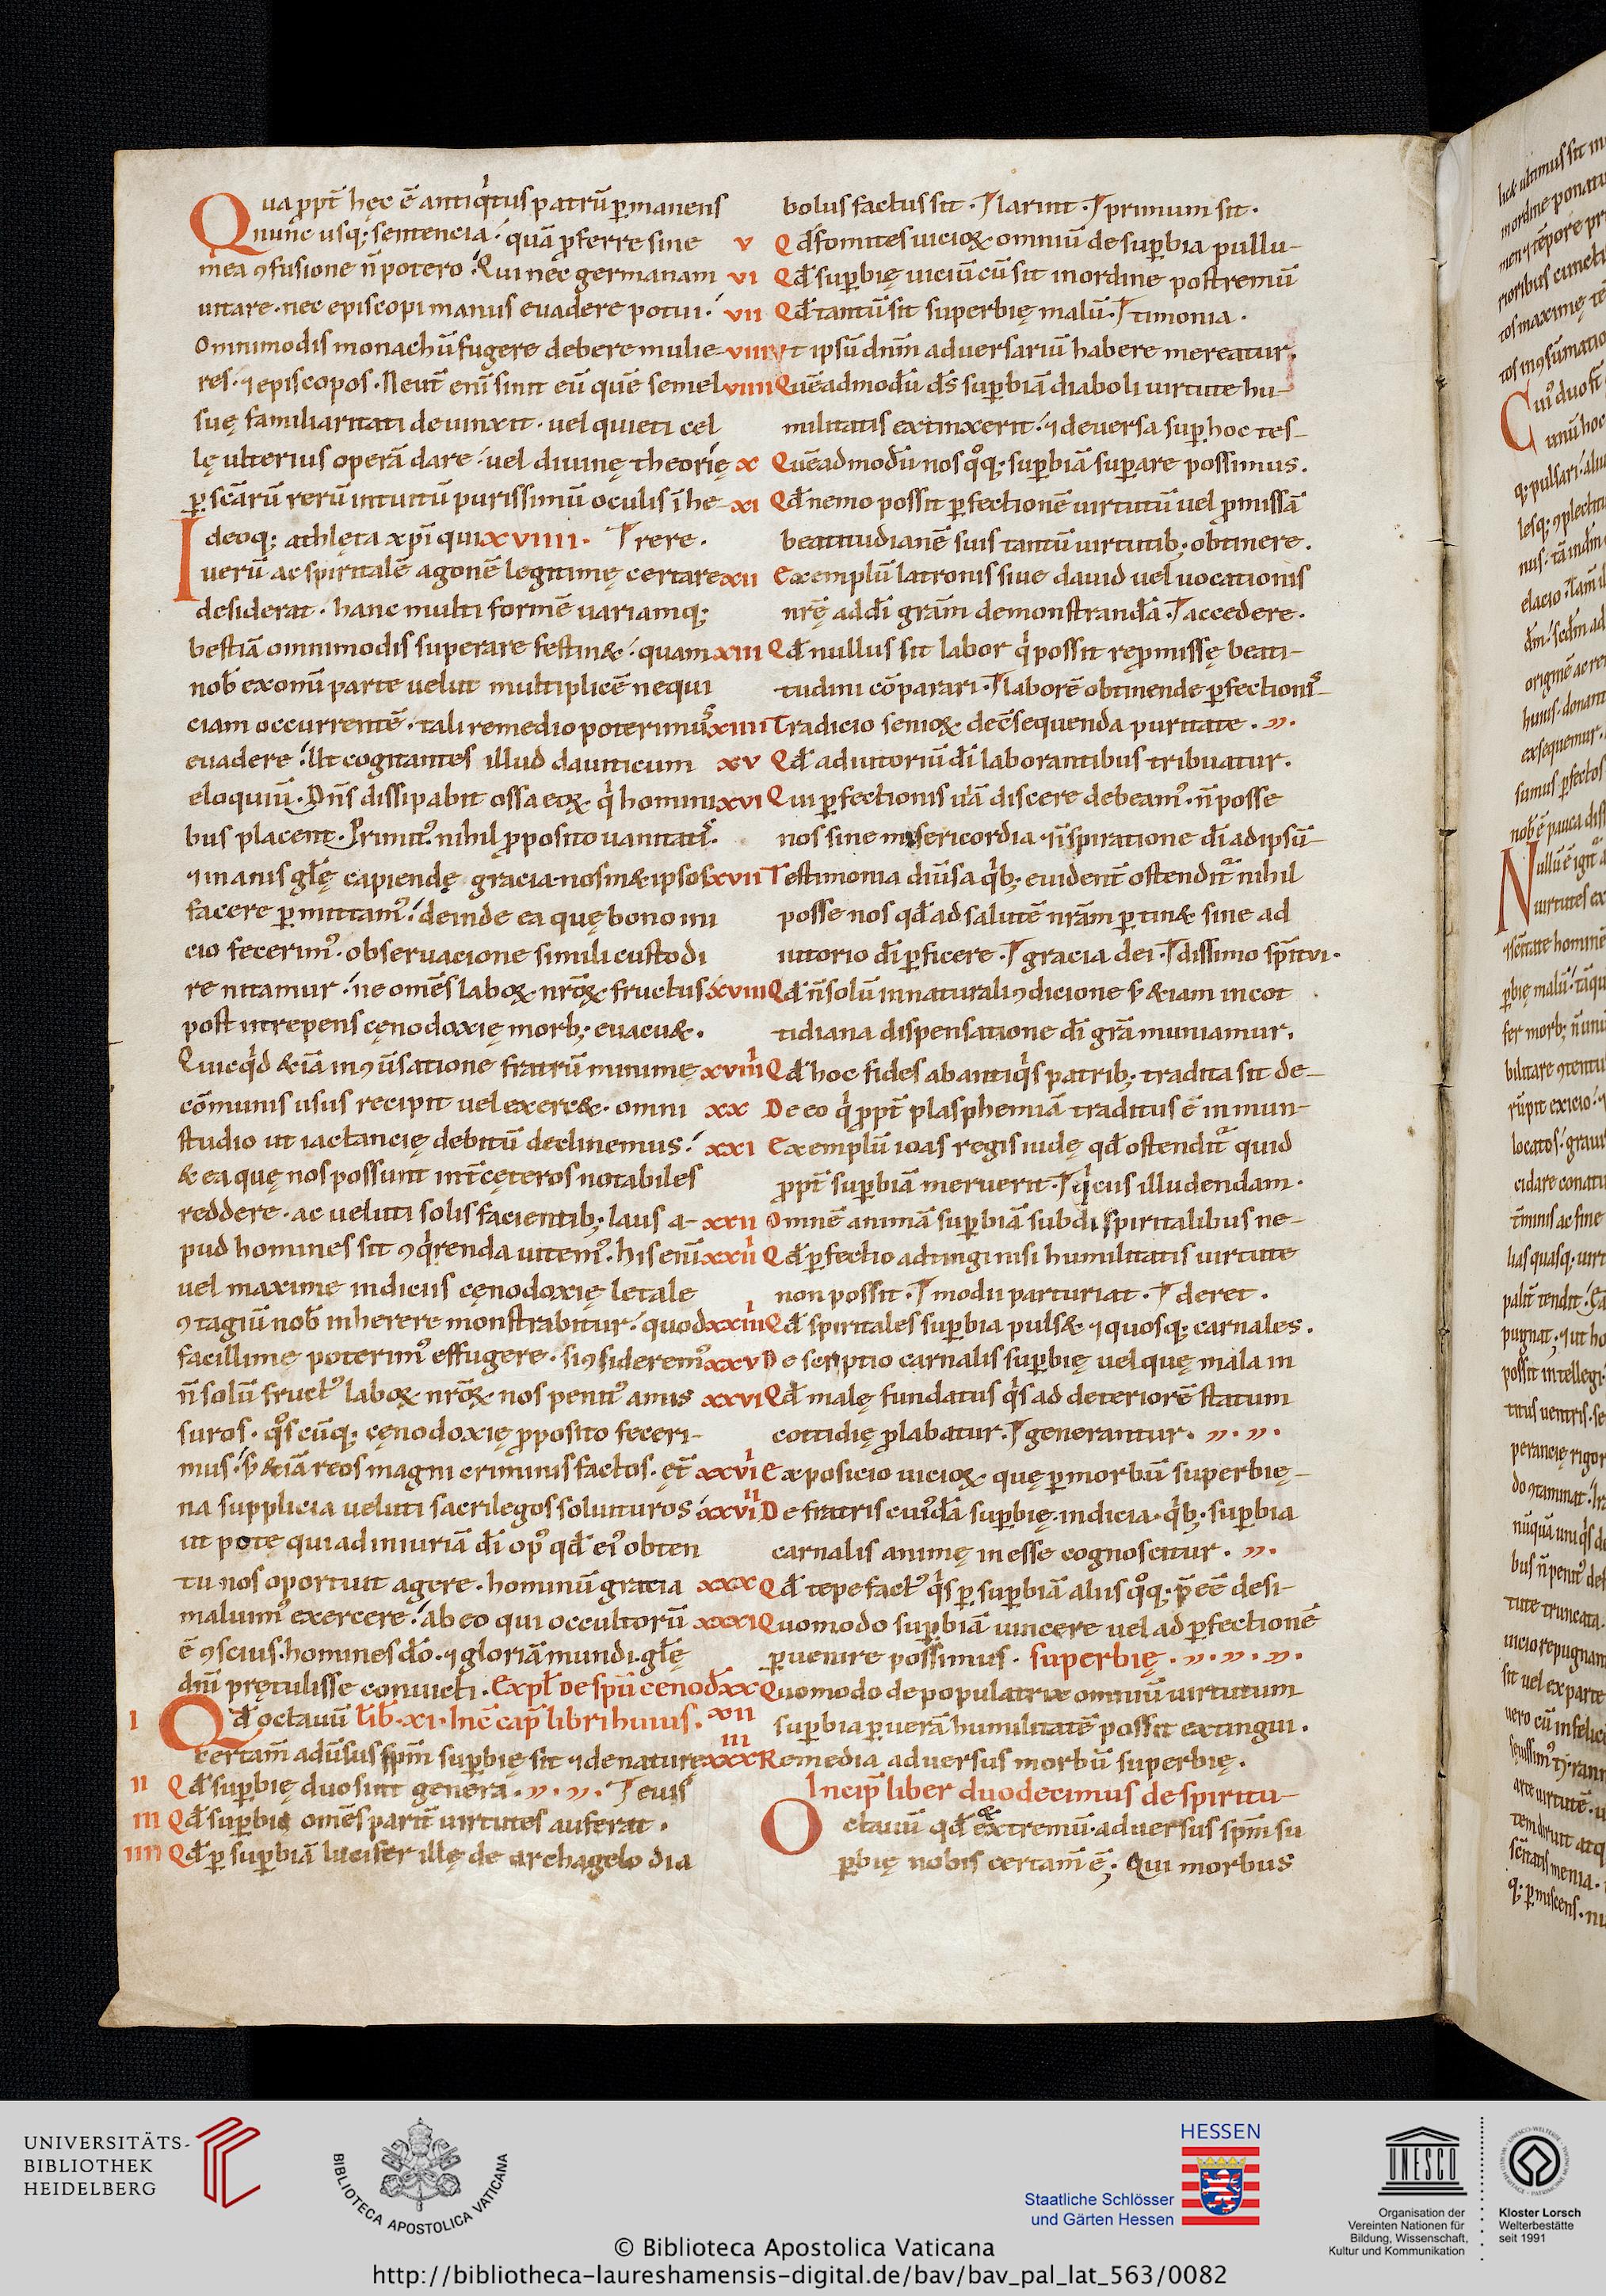 Qua ꝓpt̄ hęc ē antiqͥtus patrū ꝑmanens
nunc usq; sentencia. quā ꝓferre sine
mea ꝯfusione n̄ potero. Qui nec germanam
uitare. nec episcopi manus euadere potui.
Omnimodis monachū fugere debere mulie-
res. ⁊ episcopos. Neut̄ eni sinit eū quē semel
suę familiaritati deuinxit. uel quieti cel
lę ulterius operā dare. uel diuinę theorię
ꝑ scārū rerū intuitū purissimū oculis īhe-
Ideoq; athlęta xp̄i qui xviiii. rere.
uerū ac spiritalē agonē legitimę certare
desiderat. hanc multi formē uariamq;
bestiā omnimodis superare festin&. quam
nob̄ ex omū parte uelut multiplicē nequi
ciam occurrentē. tali remedio poterimus
euadere. Ut cogitantes illud dauiticum
eloquiū. Dn̄s dissipabit ossa eoꝝ qͥ homini
bus placent. Primit᾽ nihil ꝓposito uanitatis.
⁊ inanis glę̄ capiendę gracia nosm& ipsos
facere ꝑmittam᾽. deinde ea quę bono ini
cio fecerim᾽. obseruacione simili custodi
re nitamur. ne omēs laboꝝ nr̄oꝝ fructus
post intrepens cęnodoxię morb; euacu&.
Quicqͥd &iā in ꝯūsatione fratrū minimę
cōmunis usus recipit uel exerc&. omni
studio ut iactancię debitū declinemus.
& ea quę nos possunt int̄ cęteros notabiles
reddere. ac ueluti solis facientib; laus a-
pud homines sit ꝯqͥrenda uitem᾽. His eni
uel maxime indiciis cęnodoxię letale
ꝯtagiū nob̄ inherere monstrabitur. quod
facillime poterim᾽ effugere. si ꝯsiderem᾽
n̄ solū fruct᾽ laboꝝ nr̄oꝝ nos penit᾽ amis
suros. qͦscūq; cęnodoxię ꝓposito feceri-
mus. s; &iā reos magni criminis factos. ęt̄
na supplicia ueluti sacrilegos soluituros.
ut pote qui ad iniuriā dī op᾽ qd̄ ei᾽ obten
tu nos oportuit agere. hominū gracia
maluim᾽ exercere. ab eo qui occultorū
ē ꝯscius. homines dō. ⁊ gloriā mundi. glę̄
dn̄i prętulisse conuicti. Expl̄ de spū cenod̄
I Qd̄ octauū Lib. xi. Inc̄ cap̄ libri huius.
certam̄ aduersus spm̄ superbię sit ⁊ de naturę
II Qd̄ supbię duo sint genera. eius
III Qd̄ supbia omēs parit̄ uirtutes auferat.
IIII Qd̄ ꝑ supbiā lucifer ille de archagelo dia
bolus factus sit. larint. primum sit.
v Qd̄ fomites uicioꝝ omniū de supbia pullu-
vi Qd̄ supbię uiciū cū sit in ordine postremū
vii Qd̄ tantū sit superbię malū. timonia.
viii ut ipsū dn̄m adversariū habere mereatur.
viiii Quēadmodū ds̄ supbiā diaboli uirtute hu-
militatis extinxerit. ⁊ de uersa sup hoc tes-
x Quēadmodū nos qͦq; supbiā supare possimus.
xi Qd̄ nemo possit ꝑfectionē uirtutū uel ꝓmissā
beatitudianē suis tantū uirtutib; obtinere.
xii Exemplū latronis siue dauid uel uocationis
nrę̄ ad dī grām demonstrandā. accedere.
xiii Qd̄ nullus sit labor qͥ possit reꝓmissę beati-
tudini cōparari. laborē obtinende ꝑfectionis
xiiii Tradicio senioꝝ de c̄sequenda puritate.
xv Qd̄ adiutoriū dī laborantibus tribuatur.
xvi Qui ꝑfectionis uiā discere debeam᾽. n̄ posse
nos sine misericordia ⁊ īspiratione dī ad ipsū
xvii Testimonia diūsa qͥb; euident̄ ostendit᷑ nihil
posse nos qd̄ ad salutē nrām ꝑtin& sine ad
iutorio dī ꝑficere. gracia dei. dissimo spīritvi.
xviii Qd̄ n̄ solū in naturali ꝯdicione s; &iam in cot
tidiana dispensatione dī grā muniamur.
xviiii Qd̄ hoc fides ab antiqͥs patrib; tradita sit de-
xx De eo qͥ ꝓpt̄ plasphemiā traditus ē inmun-
xxi Exemplū ioas regis iudę qd̄ ostendit᷑ quid
ꝓpt̄ supbiā meruerit. qͥcus illudendam.
xxii Omnē animā supbiā subdi spiritalibus ne-
xxiii Qd̄ ꝑfectio adtingi nisi humilitatis uirtute
non possit. modū parturiat. deret.
xxiiii Qd̄ spiritales supbia puls& ⁊ quosq; carnales.
xxv De scriptio carnalis supbię uel quę mala in
xxvi Qd̄ malę fundatus qͥs ad deteriorē statum
cottidię ꝓlabatur. generantur.
xxvii Exposicio uicioꝝ quę ꝑ morbū superbię
xxviii De fratris cui᾽dā supbię indicia. qͥb; supbia
carnalis animę inesse cognoscitur.
xxx Qd̄ tepefact᾽ qͥs ꝑ supbiā aliis qͦq; p̄ eē desi-
xxxi Quomodo supbiā uincere uel ad ꝑfectionē
ꝑuenire possimus. superbię.
xxxii Quomodo de populatrix omniū uirtutum
supbia ꝑ uerā humilitatē possit extingui.
xxxiii Remedia adversus morbū superbię.
Incip̄ liber duodecimus de spiritu-
Octauū qd̄ & extremū. adversus spm̄ su
ꝑbię nobis certam̄ ē; Qui morbus
UNIVERSITÄTS-
BIBLIOTHEK
HEIDELBERG
BIBLIOTECA APOSTOLICA VATICANA
HESSEN
Staatliche Schlösser
und Gärten Hessen
UNESCO
Organisation der
Vereinten Nationen für
Bildung, Wissenschaft,
Kultur und Kommunikation
Kloster Lorsch
Welterbestätte
seit 1991
© Biblioteca Apostolica Vaticana
http://bibliotheca-laureshamensis-digital.de/bav/bav_pal_lat_563/0082